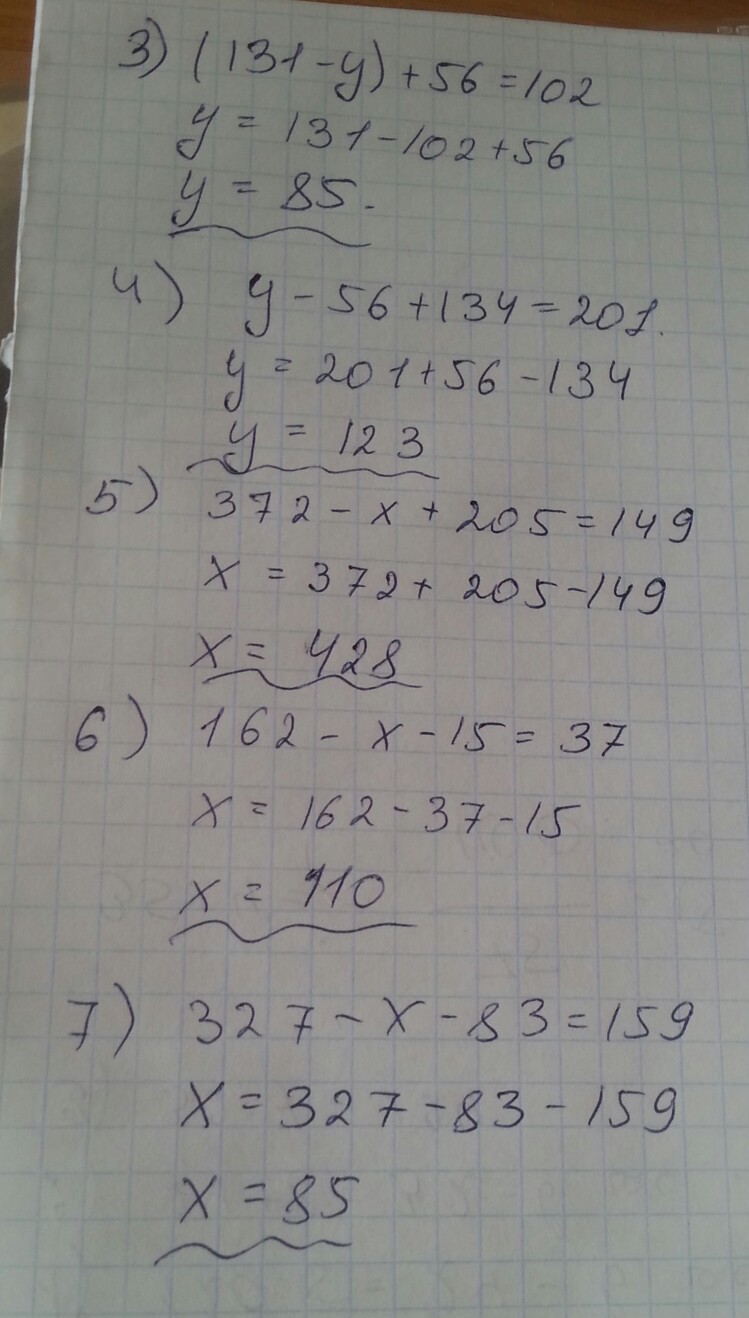 3) (131-y)+56=102
y = 131-102+56
y = 85.
4) y-56+134=201.
y = 201+56-134
y = 123
5) 372-x+205=149
x = 372+205-149
x = 428
6) 162-x-15=37
x = 162-37-15
x = 110
7) 327-x-83=159
x = 327-83-159
x = 85